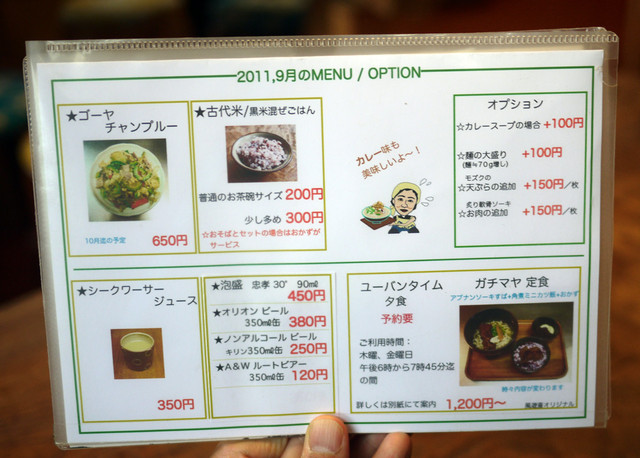 2011,9月のMENU / OPTION
★ゴーヤ
チャンプルー
10月迄の予定
650円
★古代米/黒米混ぜごはん
普通のお茶碗サイズ 200円
少し多め 300円
☆おそばとセットの場合はおかずが
サービス
カレー味も
美味しいよ〜！
オプション
☆カレースープの場合 +100円
☆麺の大盛り +100円
(麺≒70g増し)
モズクの
☆天ぷらの追加 +150円/枚
炙り軟骨ソーキ
☆お肉の追加 +150円/枚
★シークワーサー
ジュース
350円
★泡盛 忠孝 30° 90ml
450円
★オリオン ビール
350ml缶 380円
★ノンアルコール ビール
キリン350ml缶 250円
★A&W ルートビアー
350ml缶 120円
ユーバンタイム
夕食
予約要
ご利用時間：
木曜、金曜日
午後6時から7時45分迄
の間
詳しくは別紙にて案内
ガチマヤ 定食
アブナンソーキすば+角煮ミニカツ飯+おかず
時々内容が変わります
1,200円〜
オリジナル